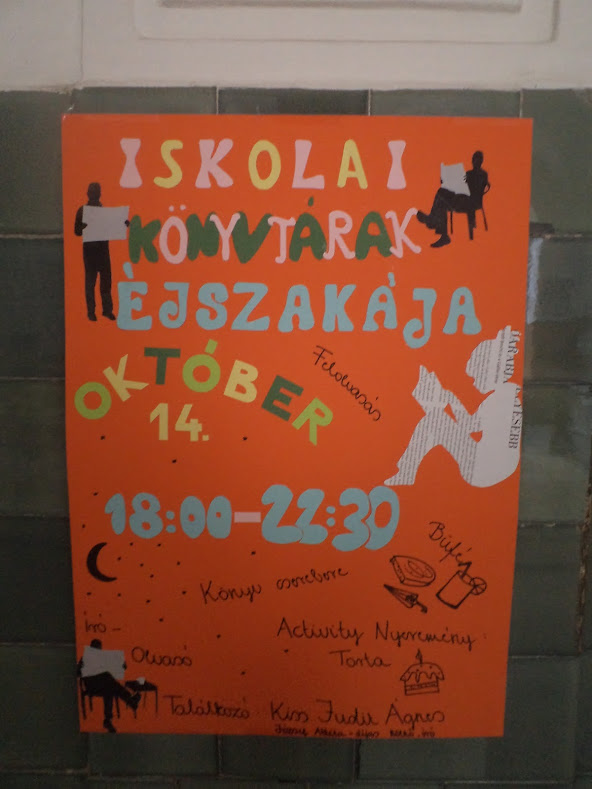 ISKOLAI
KÖNYVTÁRAK
ÉJSZAKÁJA
OKTÓBER
14.
Felolvasás
18:00-22:30
Büfé
Könyv cserebere
Activity Nyeremény:
Torta
Író -
Olvasó
Találkozó: Kiss Judit Ágnes
József Attila-díjas költő, író